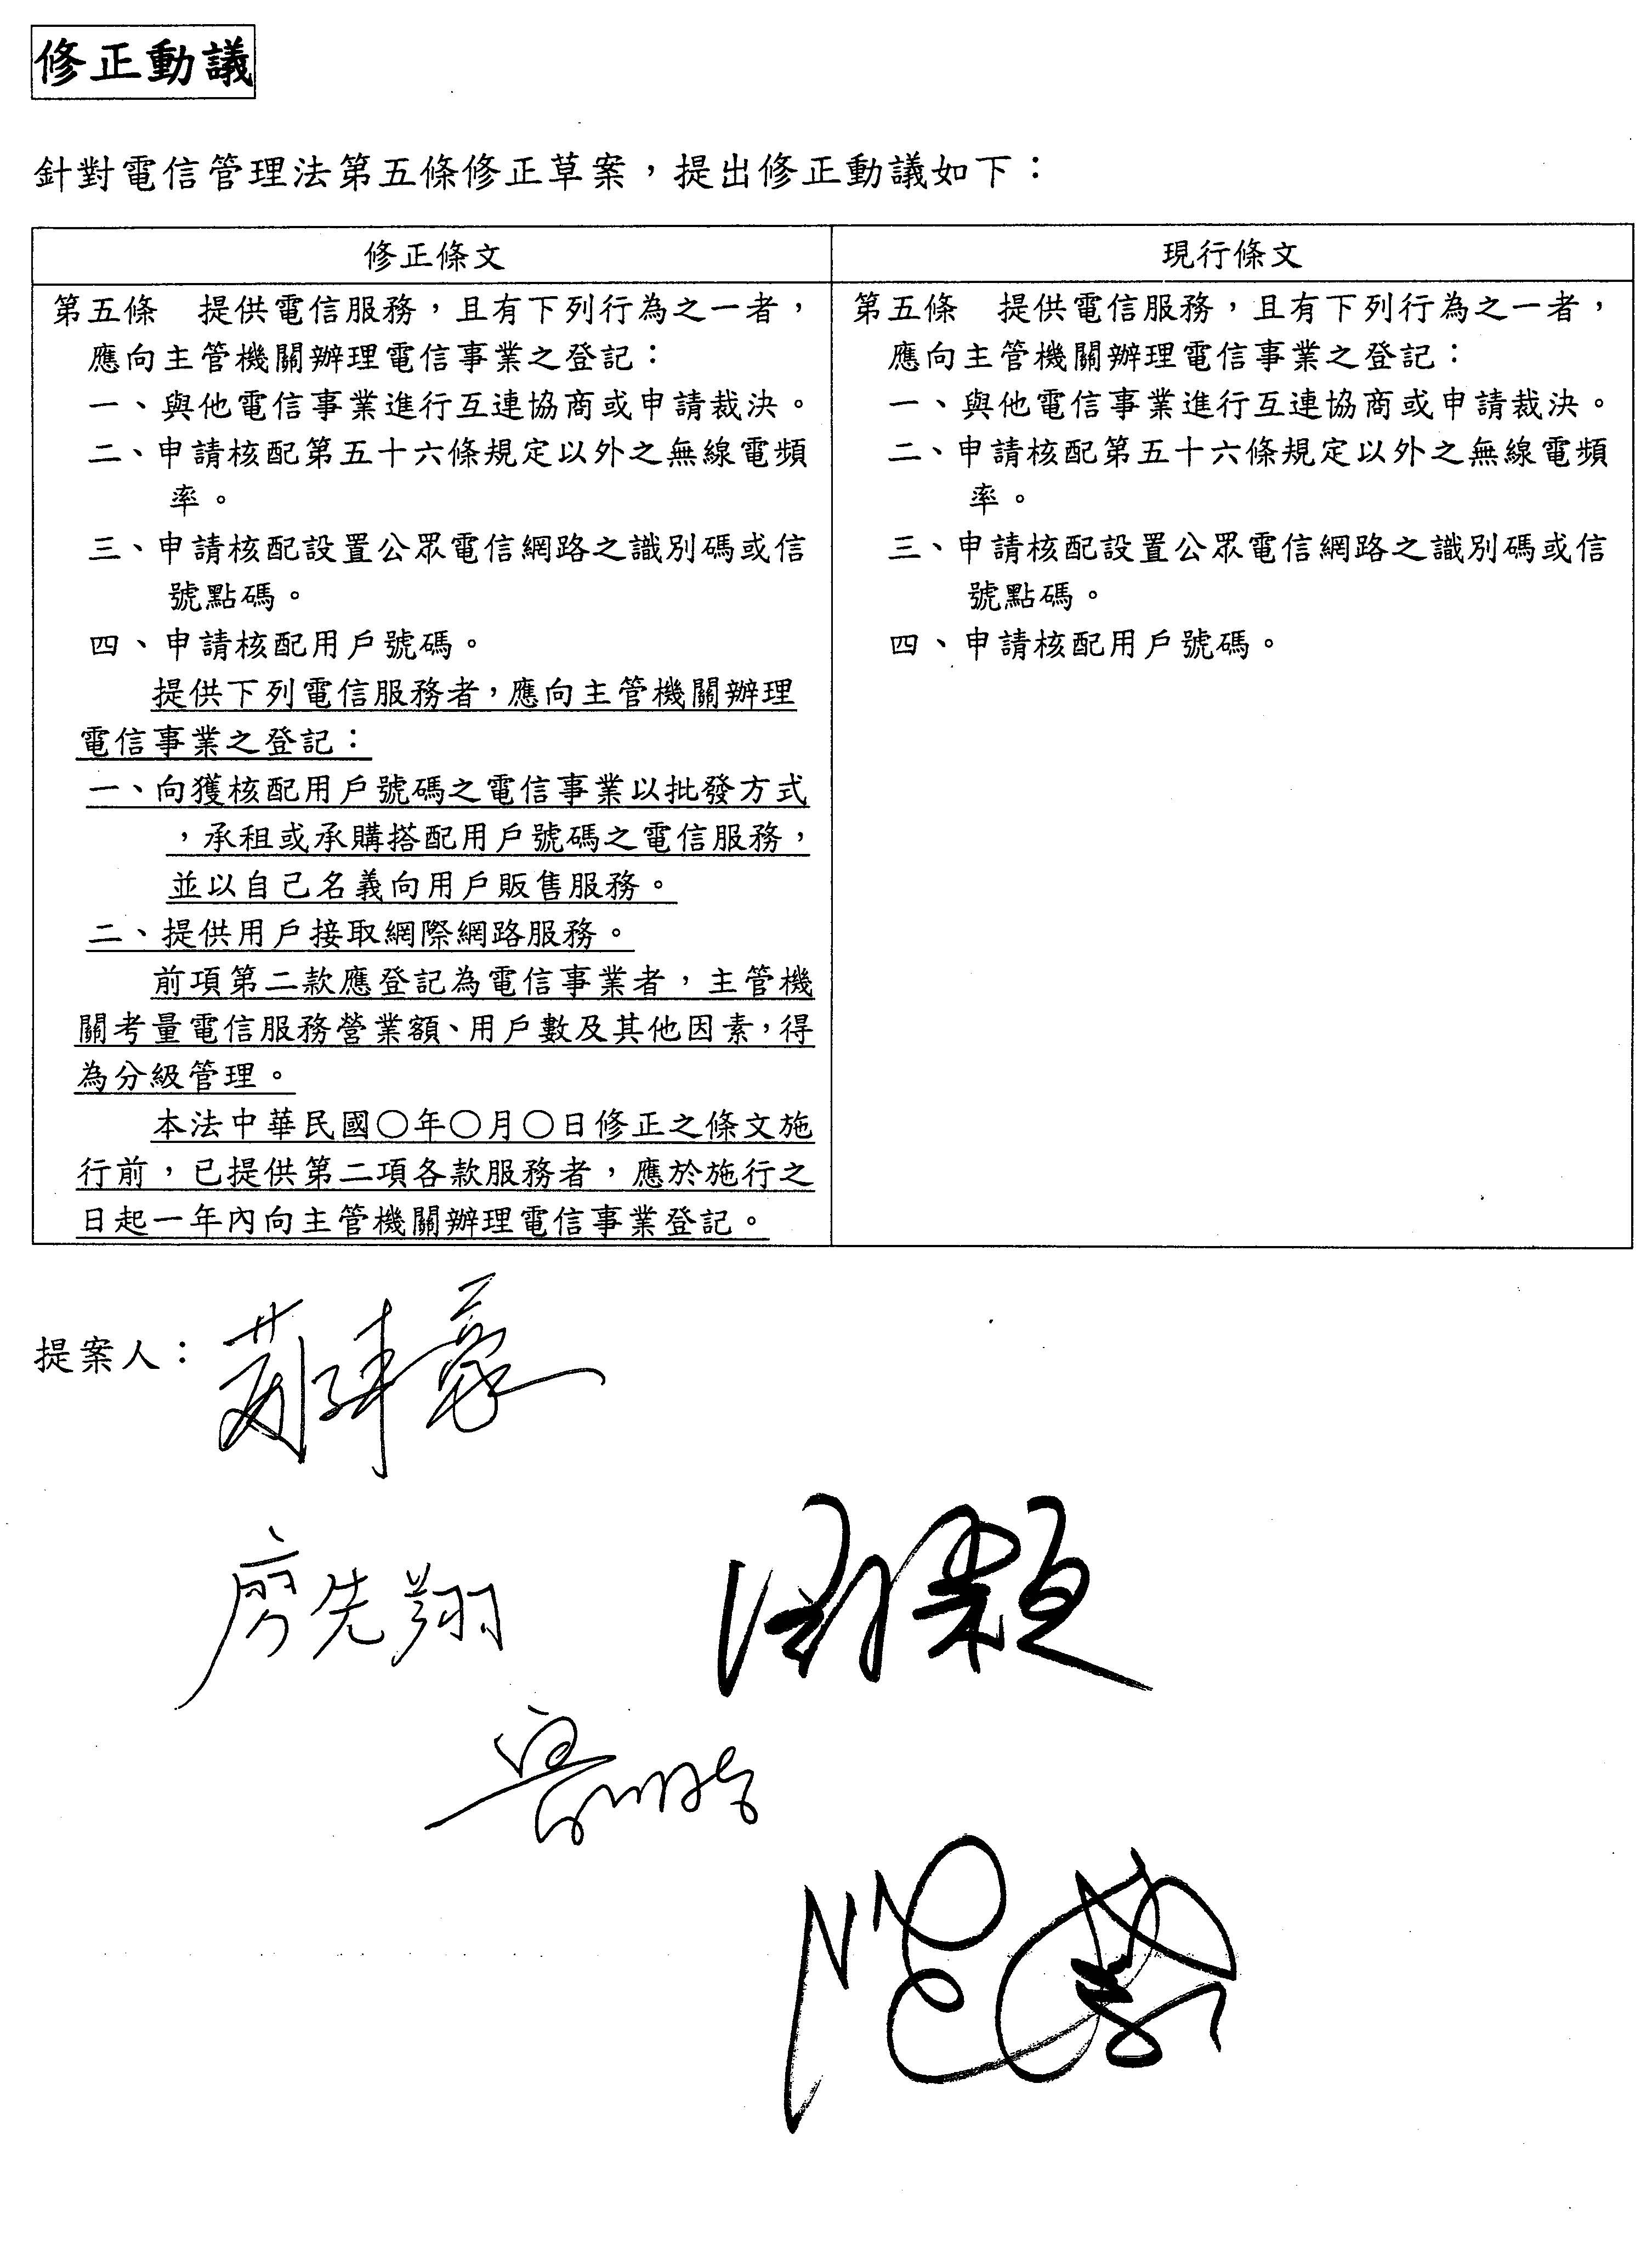 修正動議
針對電信管理法第五條修正草案，提出修正動議如下：
修正條文
第五條　提供電信服務，且有下列行為之一者，
應向主管機關辦理電信事業之登記：
一、與他電信事業進行互連協商或申請裁決。
二、申請核配第五十六條規定以外之無線電頻
率。
三、申請核配設置公眾電信網路之識別碼或信
號點碼。
四、申請核配用戶號碼。
提供下列電信服務者，應向主管機關辦理
電信事業之登記：
一、向獲核配用戶號碼之電信事業以批發方式
，承租或承購搭配用戶號碼之電信服務，
並以自己名義向用戶販售服務。
二、提供用戶接取網際網路服務。
前項第二款應登記為電信事業者，主管機
關考量電信服務營業額、用戶數及其他因素，得
為分級管理。
本法中華民國○年○月○日修正之條文施
行前，已提供第二項各款服務者，應於施行之
日起一年內向主管機關辦理電信事業登記。
現行條文
第五條　提供電信服務，且有下列行為之一者，
應向主管機關辦理電信事業之登記：
一、與他電信事業進行互連協商或申請裁決。
二、申請核配第五十六條規定以外之無線電頻
率。
三、申請核配設置公眾電信網路之識別碼或信
號點碼。
四、申請核配用戶號碼。
提案人：
廖先翔